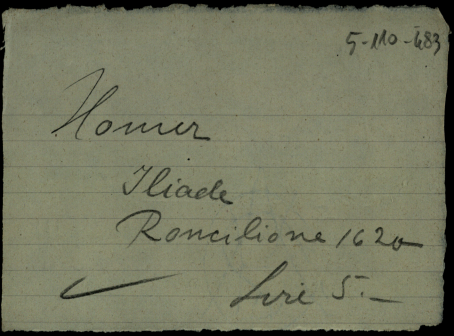 5-110-483
Homer
Iliade
Roncilione 1620
Lire 5.-